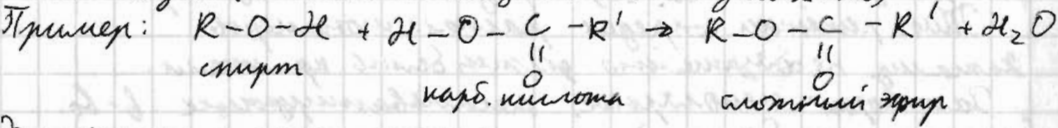 Пример: R-O-H + H-O-C-R' → R-O-C-R' + H₂O
|| ||
спирт O O
карб. кислота сложный эфир